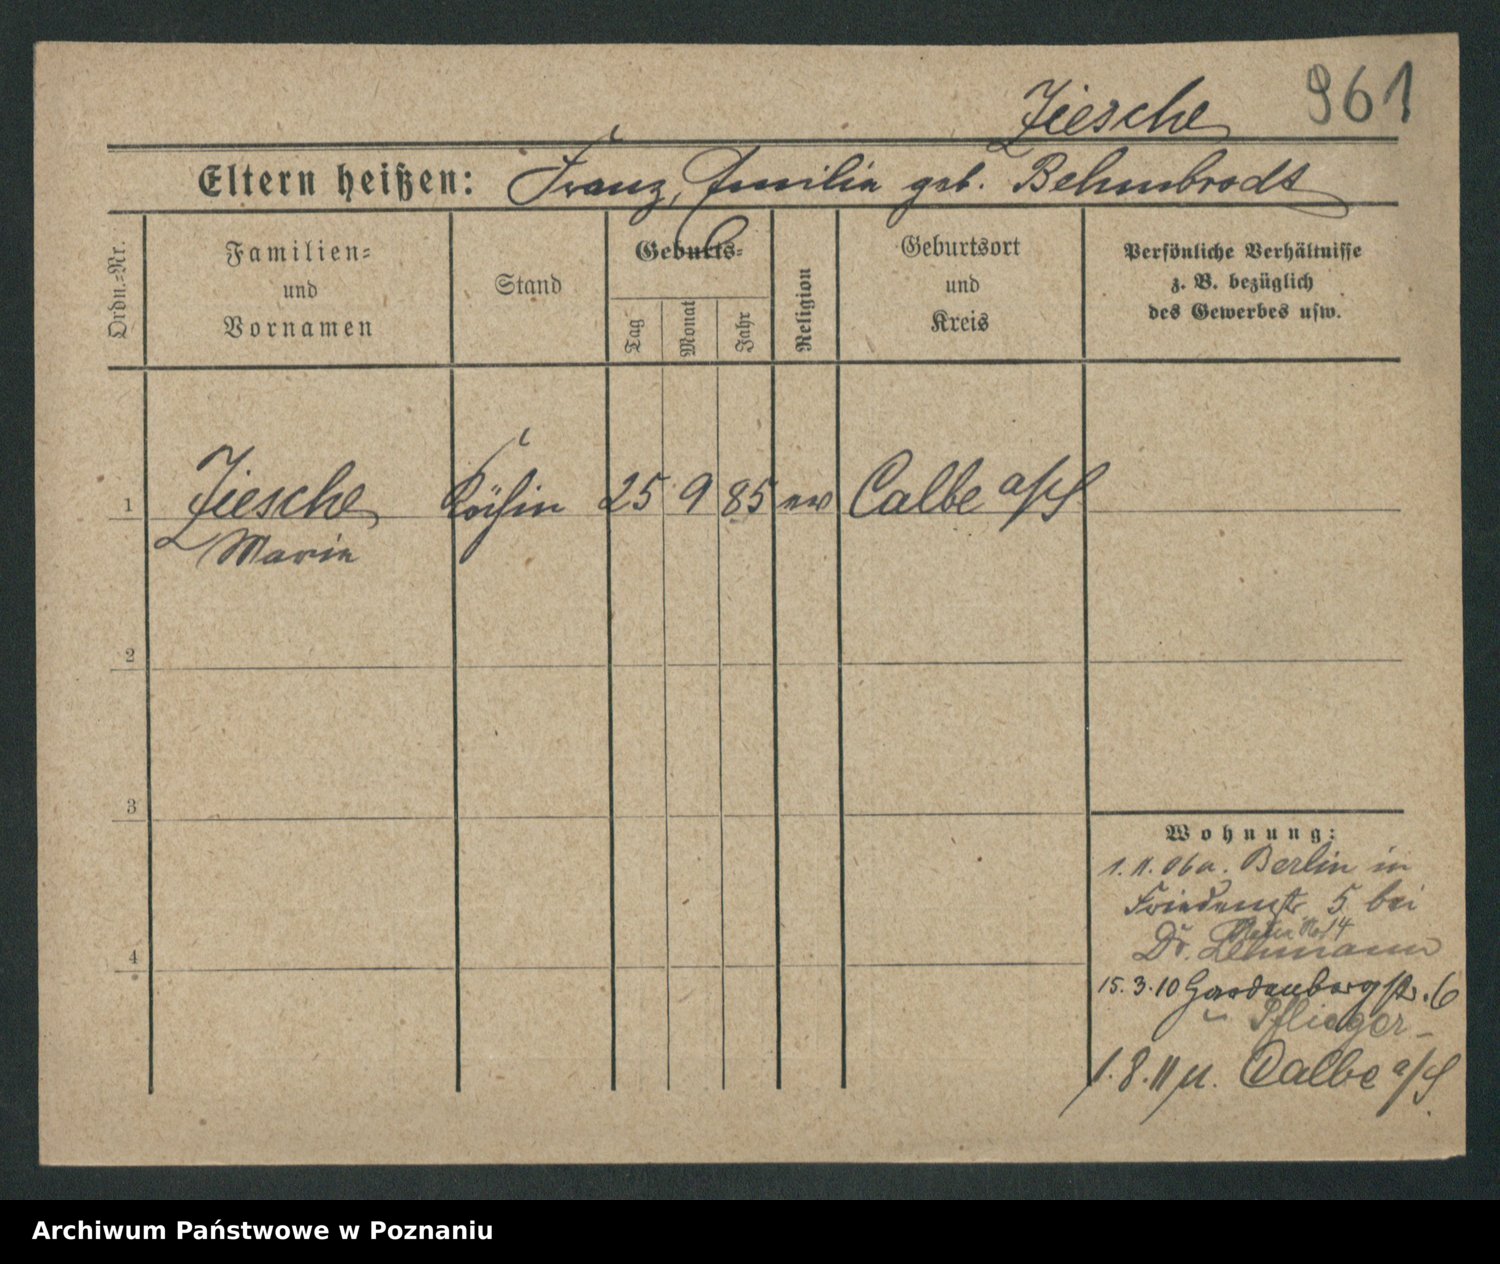 961
Ziesche
Eltern heißen: Franz, Emilia geb. Behmbrodt
Ordn.-Nr.
Familien-
und
Vornamen
Stand
Geburts-
Tag
Monat
Jahr
Religion
Geburtsort
und
Kreis
Persönliche Verhältnisse
z. B. bezüglich
des Gewerbes usw.
1 Ziesche Köchin 25 9 85 ev Calbe a/S
Marie
2
3
4
Wohnung:
1. 11. 06 a. Berlin in
Friedenstr. 5 bei
No 14
Dr. Lehmann
15. 3. 10 Hardenbergstr. 6
Pflieger
1. 8. 11 n. Calbe a/S
Archiwum Państwowe w Poznaniu